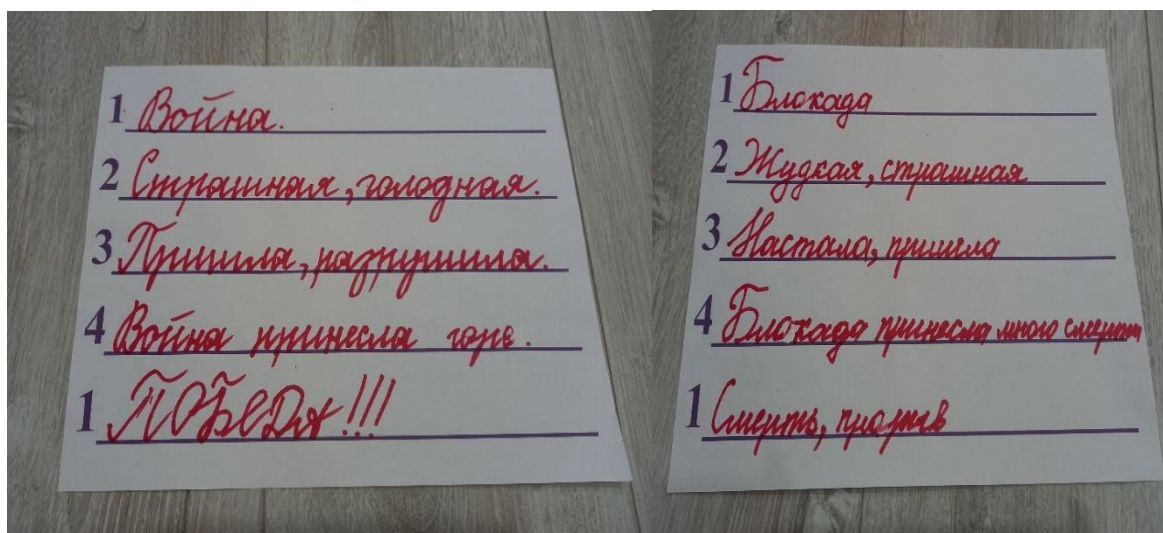 1 Война.
2 Страшная, голодная.
3 Пришла, разрушила.
4 Война принесла горе.
1 ПОБЕДА!!!
1 Блокада
2 Жудкая, страшная
3 Настала, пришла
4 Блокада принесла много смерти
1 Смерть,